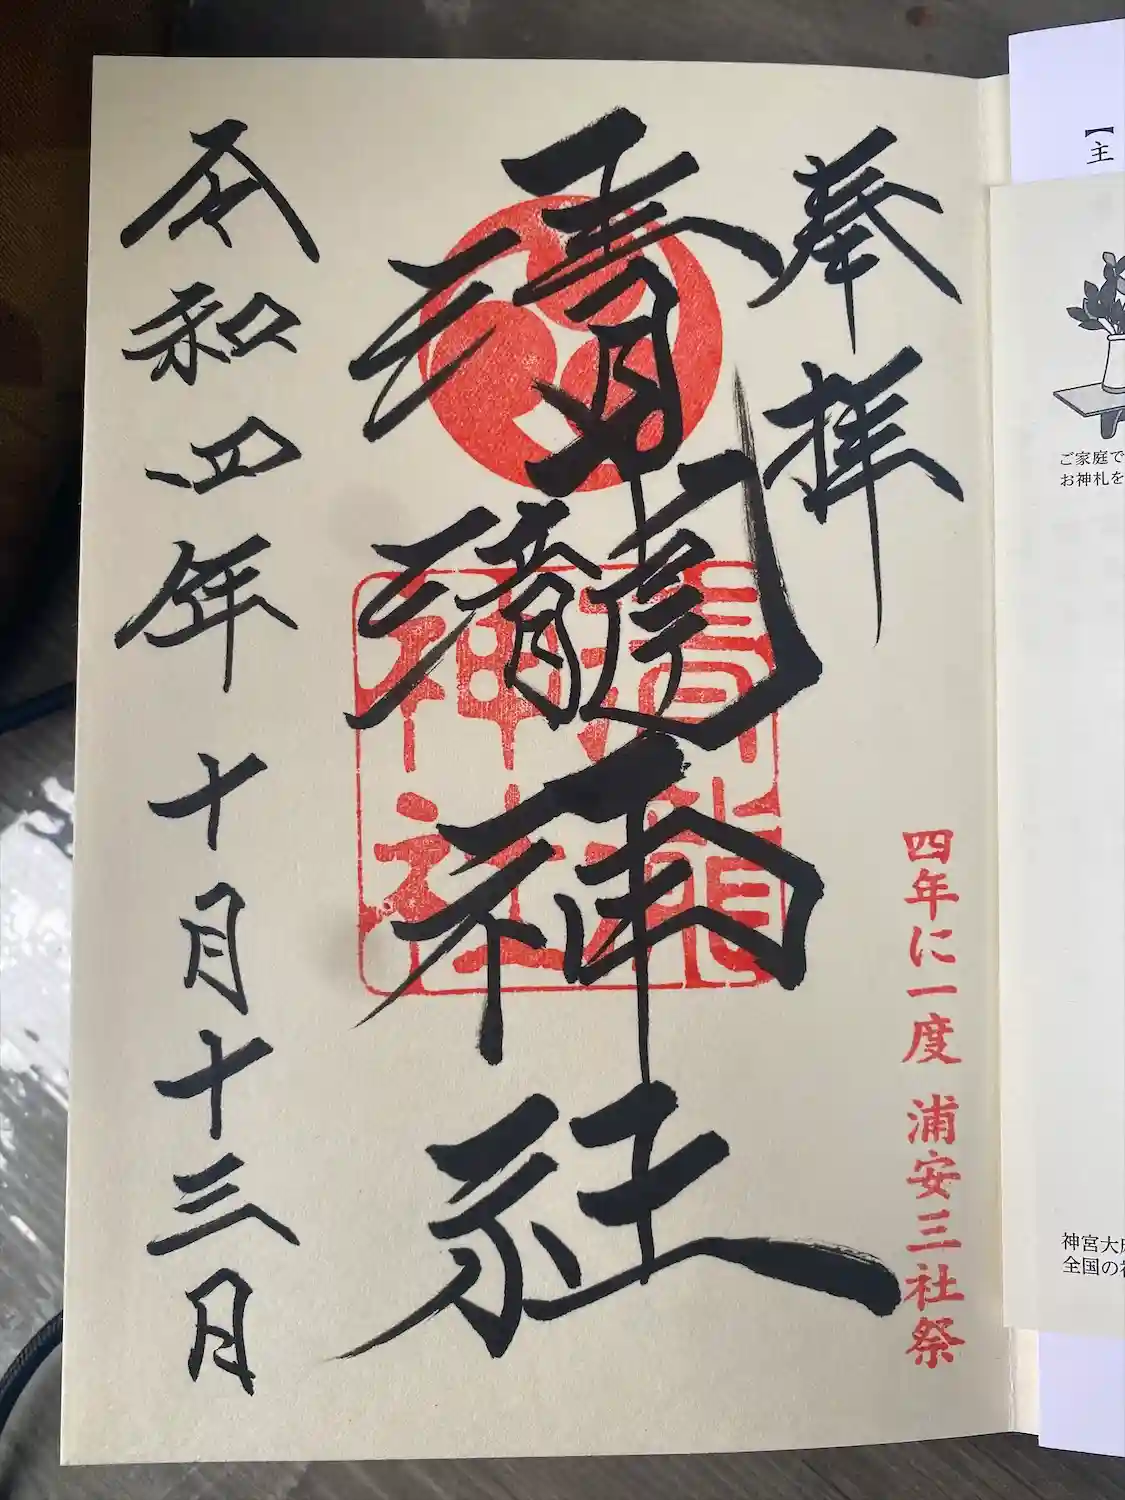 【主
ご家庭で
お神札を
神宮大
全国の
奉拝
四年に一度 浦安三社祭
清瀧神社
清瀧
神社
令和四年十月十三日